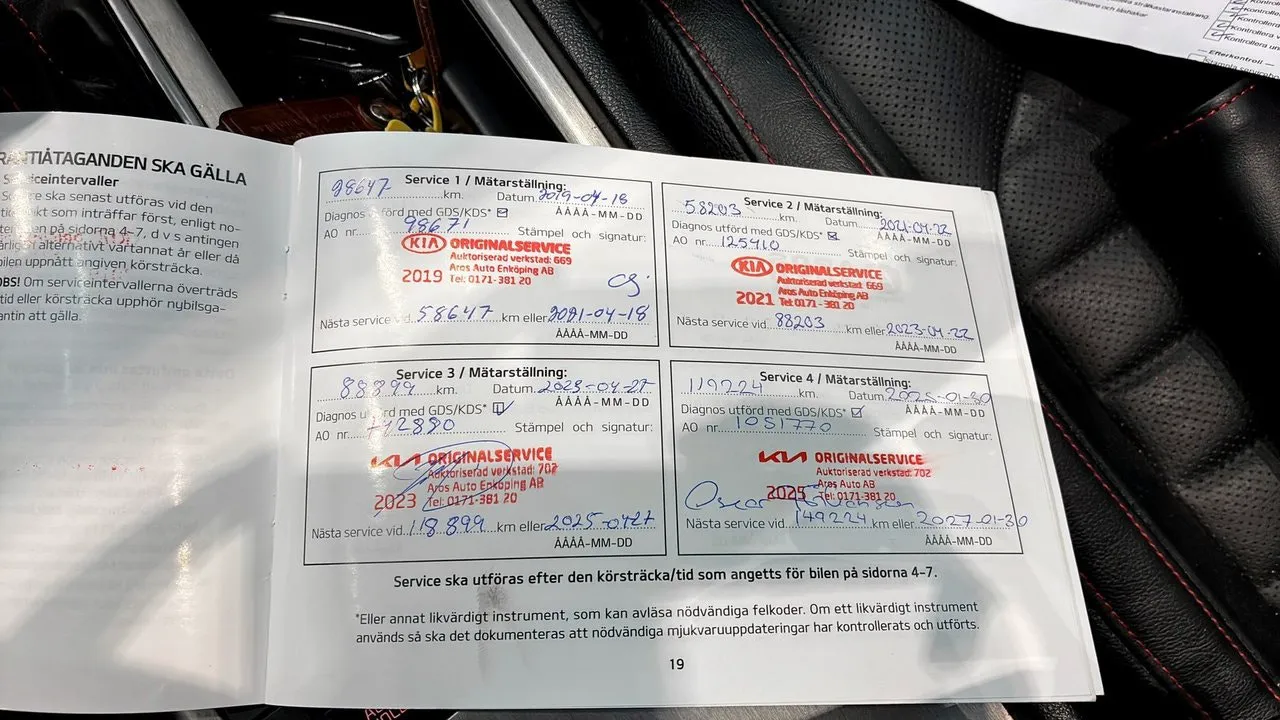 RANTIÅTAGANDEN SKA GÄLLA
Serviceintervaller
ska senast utföras vid den
som inträffar först, enligt no-
på sidorna 4-7, d v s antingen
alternativt vartannat år eller då
bilen uppnått angiven körsträcka.
OBS! Om serviceintervallerna överträds
tid eller körsträcka upphör nybilsga-
antin att gälla.
Service 1 / Mätarställning:
km. Datum 2019-04-18
Diagnos utförd med GDS/KDS* ÅÅÅÅ-MM-DD
AO nr. 98671 Stämpel och signatur:
KIA ORIGINALSERVICE
Auktoriserad verkstad: 669
Aros Auto Enköping AB
2019 Tel: 0171-381 20
Nästa service vid 58647 km eller 2021-04-18
ÅÅÅÅ-MM-DD
Service 2 / Mätarställning:
58203 km. Datum 2021-04-22
Diagnos utförd med GDS/KDS* ÅÅÅÅ-MM-DD
AO nr. 125410 Stämpel och signatur:
KIA ORIGINALSERVICE
Auktoriserad verkstad: 669
Aros Auto Enköping AB
2021 Tel: 0171-381 20
Nästa service vid 88203 km eller 2023-04-22
ÅÅÅÅ-MM-DD
Service 3 / Mätarställning:
88899 km. Datum 2023-04-27
Diagnos utförd med GDS/KDS* ÅÅÅÅ-MM-DD
AO nr. Stämpel och signatur:
KIA ORIGINALSERVICE
Auktoriserad verkstad: 702
Aros Auto Enköping AB
2023 Tel: 0171-381 20
Nästa service vid 118899 km eller 2025-0427
ÅÅÅÅ-MM-DD
Service 4 / Mätarställning:
119224 km. Datum 2025-01-30
Diagnos utförd med GDS/KDS* ÅÅÅÅ-MM-DD
AO nr. 1051770 Stämpel och signatur:
KIA ORIGINALSERVICE
Auktoriserad verkstad: 702
Aros Auto AB
2025 Tel: 0171-381 20
Oscar
Nästa service vid 149224 km eller 2027-01-30
ÅÅÅÅ-MM-DD
Service ska utföras efter den körsträcka/tid som angetts för bilen på sidorna 4-7.
*Eller annat likvärdigt instrument, som kan avläsa nödvändiga felkoder. Om ett likvärdigt instrument
används så ska det dokumenteras att nödvändiga mjukvaruuppdateringar har kontrollerats och utförts.
19